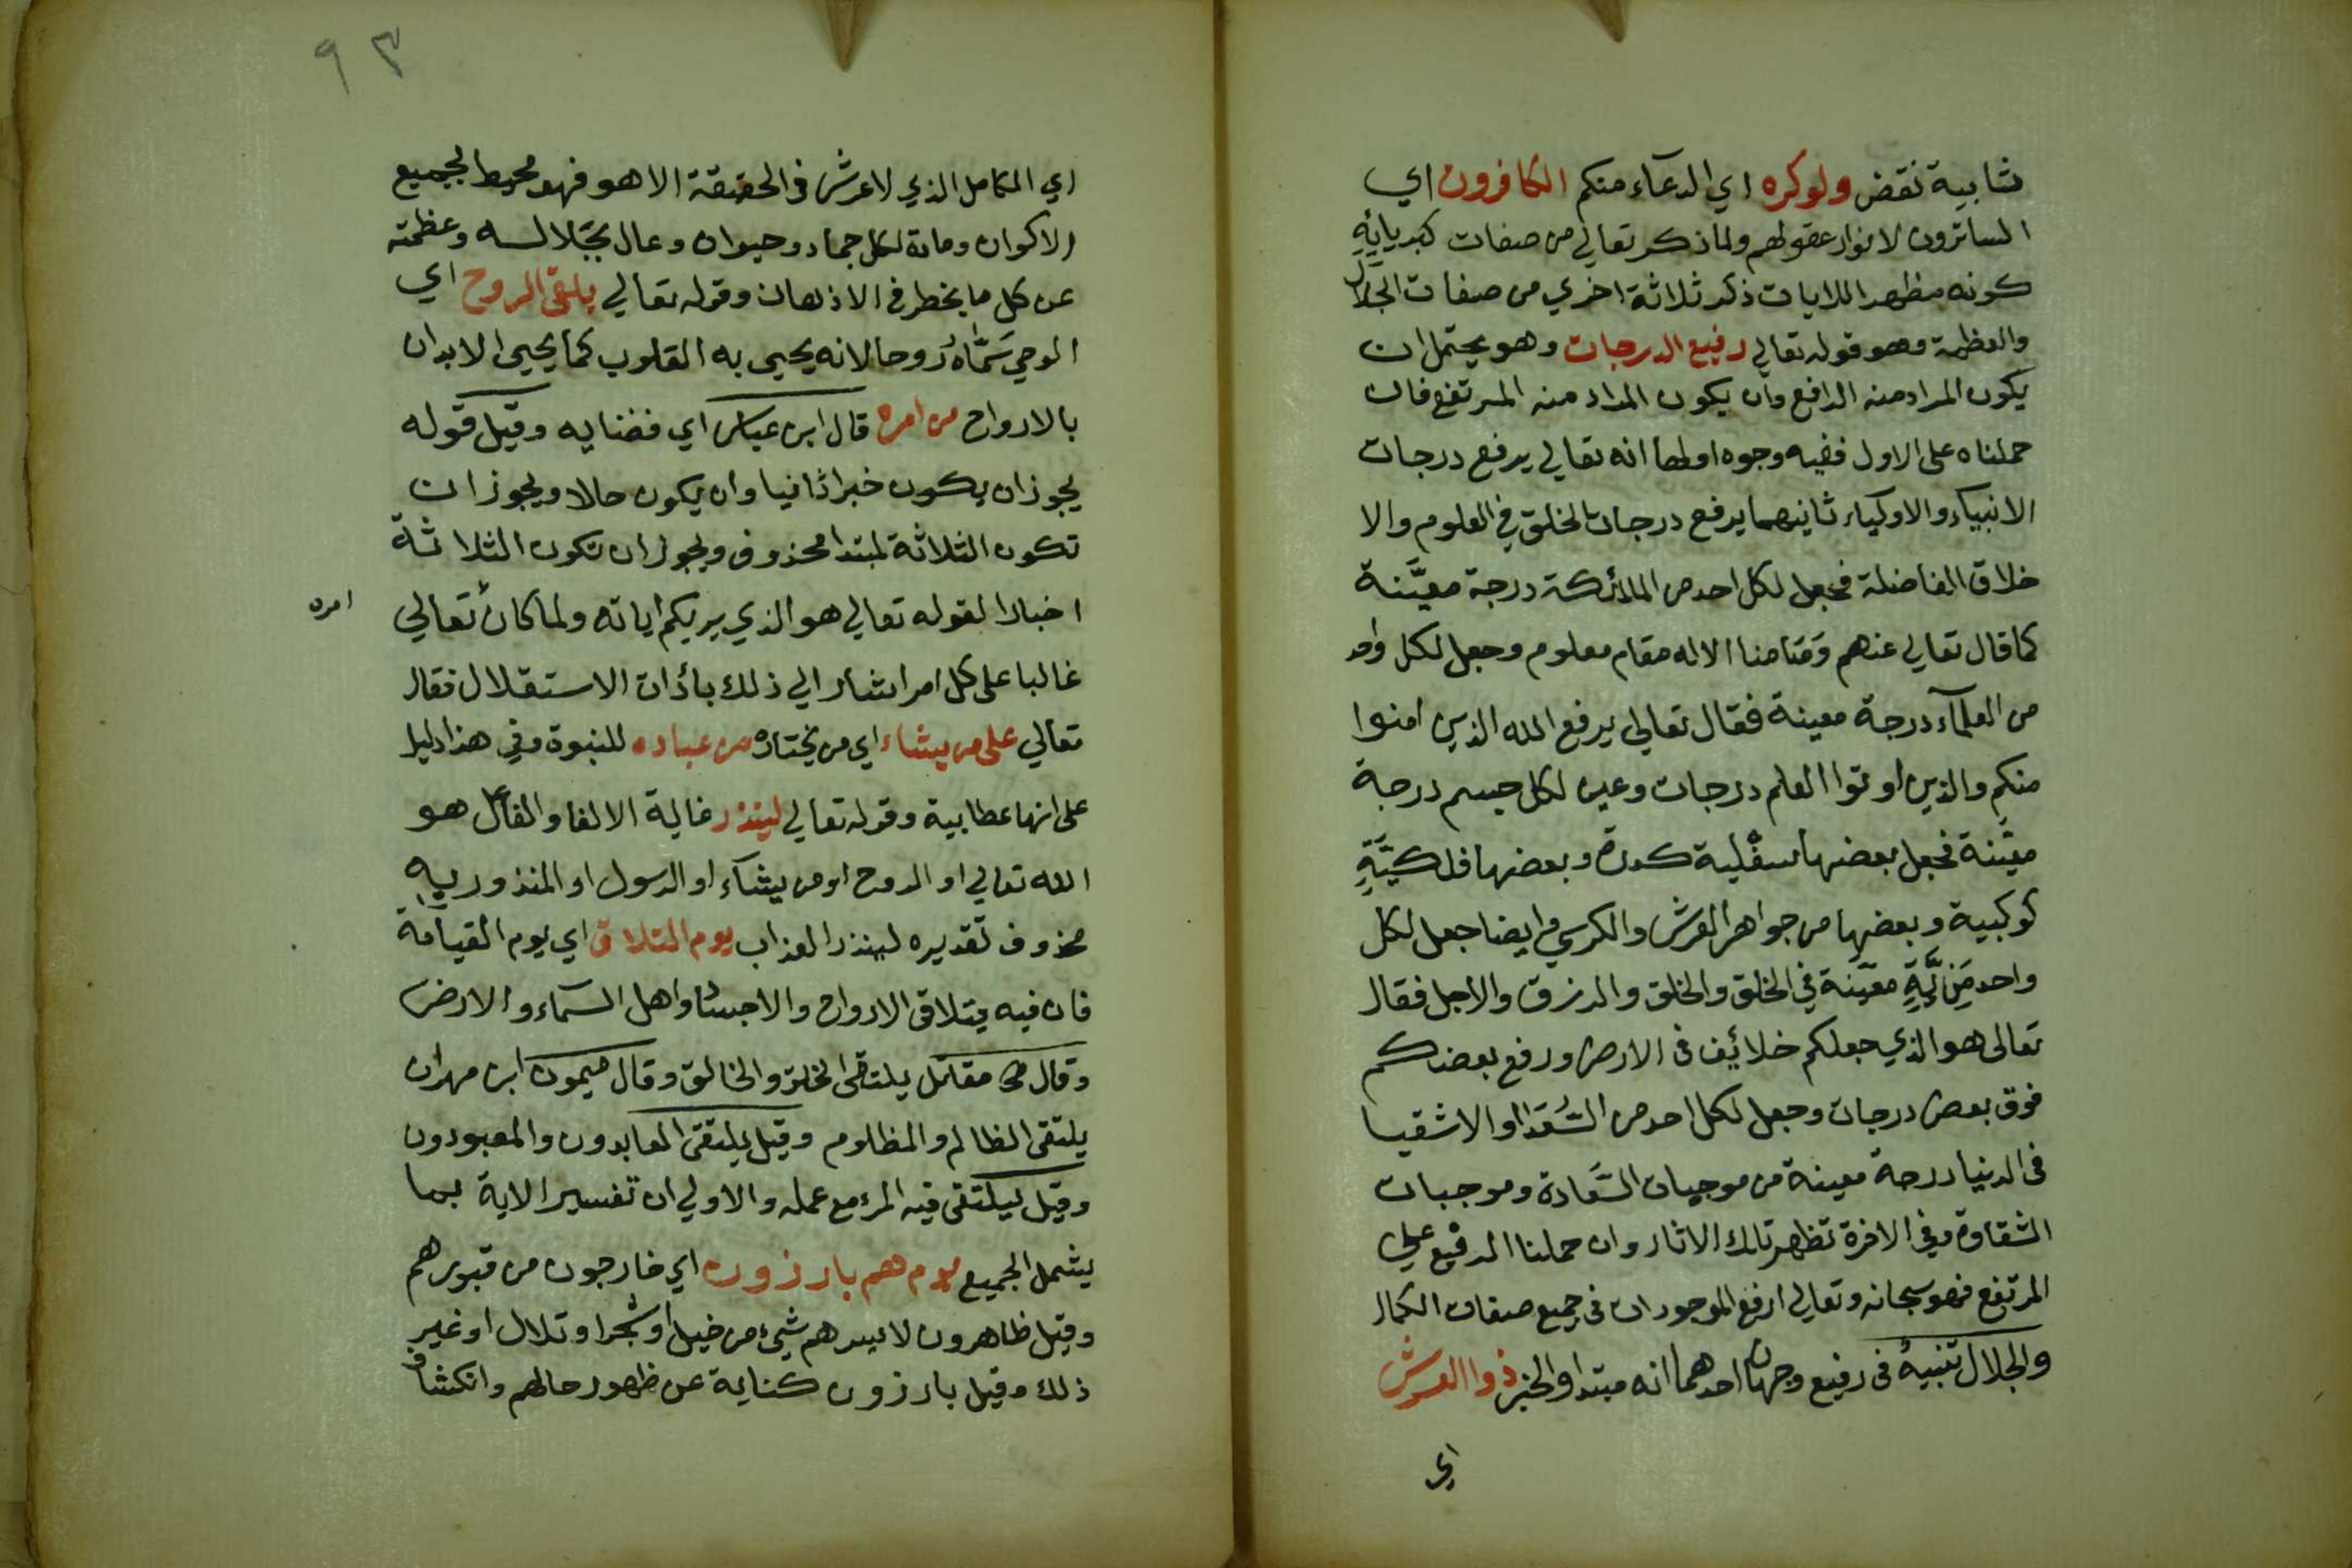 شايبة نقض ولو كره اي الدعاء منكم الكافرون اي
الساترون لانوار عقولهم ولما ذكر تعالي من صفات كبريائه
كونه مظهرا للايات ذكر ثلاثة اخري من صفات الجلال
والعظمة وهو قوله تعالي رفيع الدرجات وهو يحتمل ان
يكون المراد منه الرافع وان يكون المراد منه المرتفع فان
حملناه على الاول ففيه وجوه اولها انه تعالي يرفع درجات
الانبياء والاولياء ثانيهما يرفع درجات الخلق في العلوم والا
خلاق الفاضلة فجعل لكل احد من الملائكة درجة معينة
كما قال تعالي عنهم وما منا الا له مقام معلوم وجعل لكل واحد
من العلماء درجة معينة فقال تعالي يرفع الله الذين امنوا
منكم والذين اوتوا العلم درجات وعين لكل جسم درجة
معينة فجعل بعضها سفلية كدرة وبعضها فلكية
كوكبية وبعضها من جواهر العرش والكرسي وايضا جعل لكل
واحد مزية معينة في الخلق والخلق والرزق والاجل فقال
تعالى هو الذي جعلكم خلائف في الارض ورفع بعضكم
فوق بعض درجات وجعل لكل احد من السعدا والاشقيا
في الدنيا درجة معينة من موجبات السعادة وموجبات
الشقاوة وفي الاخرة تظهر تلك الاثار وان حملنا الرفيع علي
المرتفع فهو سبحانه وتعالي ارفع الموجودات في جميع صفات الكمال
والجلال تنبيه في رفيع وجهان احدهما انه مبتدا والخبر ذوا العرش
اي
٩٣
اي الكامل الذي لا عرش في الحقيقة الا هو فهو محيط لجميع
الاكوان ومادة لكل جماد وحيوان وعال بجلاله وعظمته
عن كل ما يخطر في الاذهان وقوله تعالي يلقي الروح اي
الوحي سماه روحا لانه يحيى به القلوب كما يحيي الابدان
بالارواح من امره قال ابن عباس اي قضايه وقيل قوله
يجوز ان يكون خبرا ثانيا وان يكون حالا ويجوز ان
تكون الثلاثة لمبتدا محذوف ويجوز ان تكون الثلاثة
اخبارا لقوله تعالي هو الذي يريكم اياته ولما كان تعالي
امره
غالبا على كل امر اشار الي ذلك باداة الاستقلال فقال
تعالي على من يشاء اي من يختاره من عباده للنبوة وفي هذا دليل
على انها عطايية وقوله تعالي لينذر غاية الالقا والفاعل هو
الله تعالي او الروح او من يشاء او الرسول او المنذور به
محذوف تقديره لينذر العذاب يوم التلاق اي يوم القيامة
فان فيه يتلاقى الارواح والاجساد واهل السماء والارض
وقال مقاتل يلتقى الخلق والخالق وقال ميمون ابن مهران
يلتقى الظالم والمظلوم وقيل يلتقى العابدون والمعبودون
وقيل ليلتقى فيه المرء مع عمله والاولي ان تفسير الاية بما
يشمل الجميع يوم هم بارزون اي خارجون من قبورهم
وقيل ظاهرون لا يسترهم شيء من خيل او شجر او تلال او غير
ذلك وقيل بارزون كناية عن ظهور حالهم وانكشاف